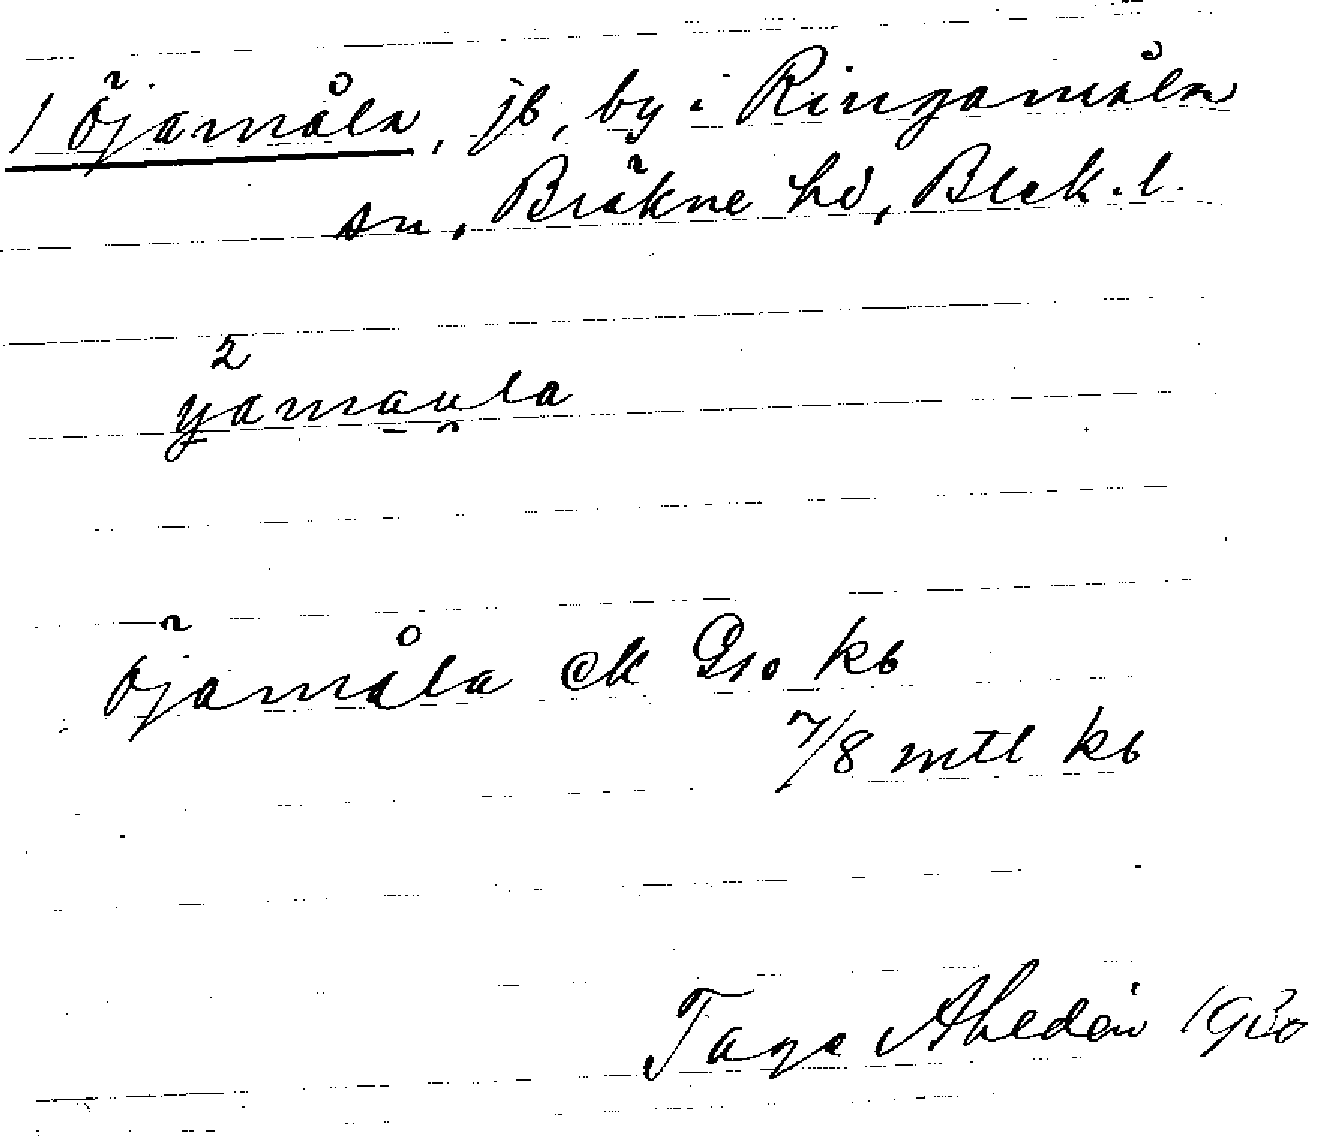 1 Öjamåla, jb, by i Ringamåla
sn, Bräkne hd, Blek. l.
2
yamau̯la
Öjamåla EK Gro kb
7/8 mtl kb
Tage Ahldén 1930